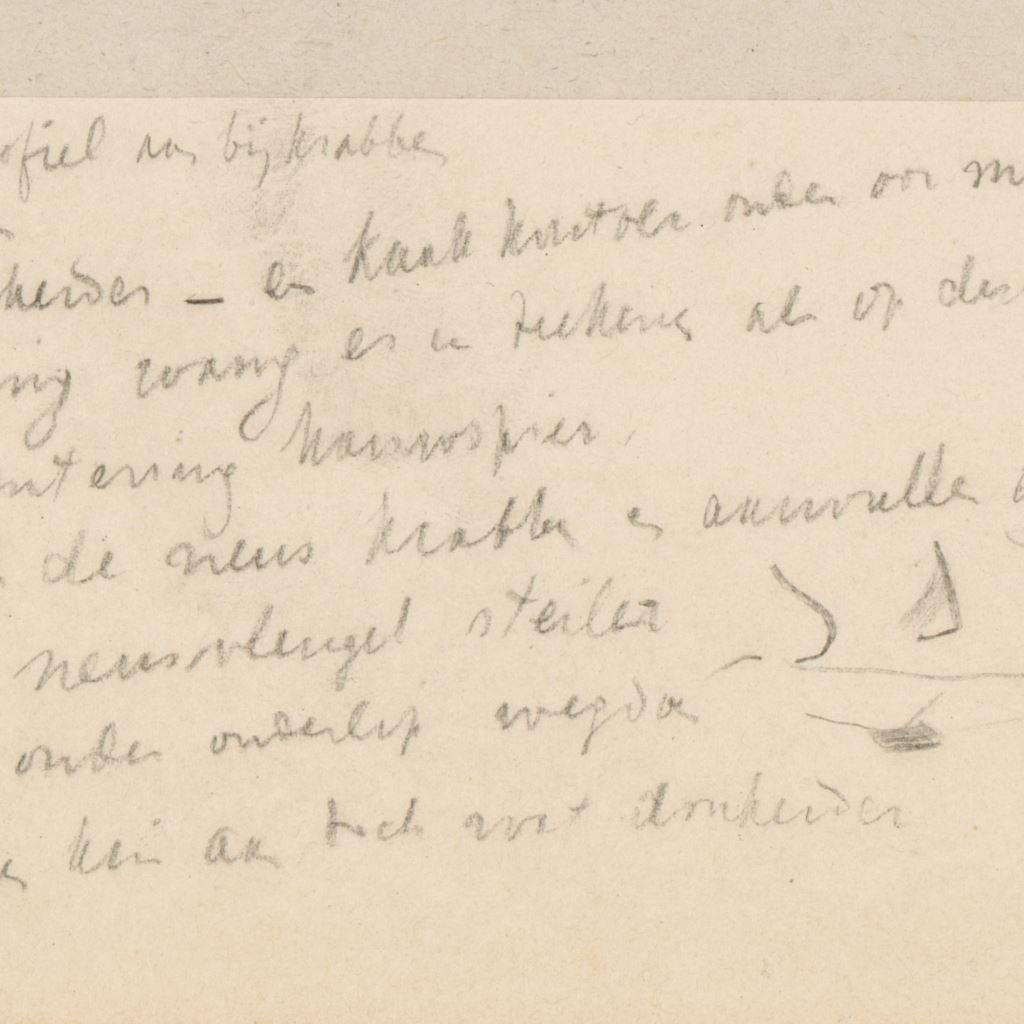 ofiel van bijkrabben
kerder - en kaak kontoer onder oor m
ing wang er in teekenen als op de
ntering kauwspier.
de neus krabben en aanvullen
neusvleugel steiler
onder onderlip wegdoen
kin aan toch wat donkerder